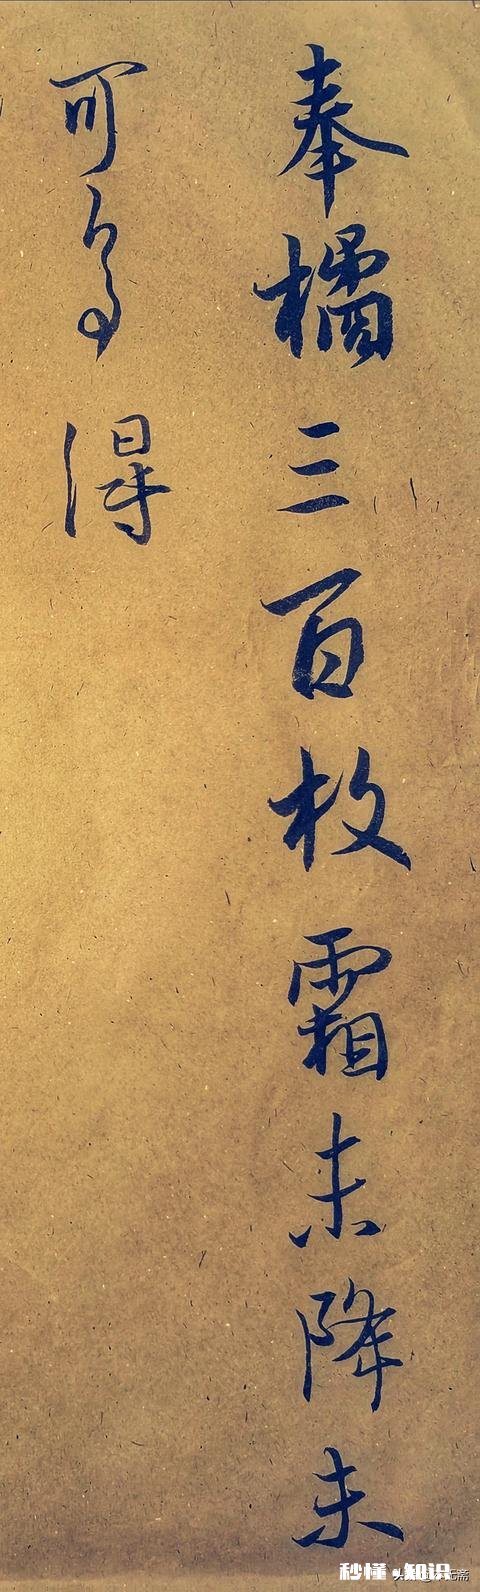 奉橘三百枚霜未降未
可多得
秒懂知识